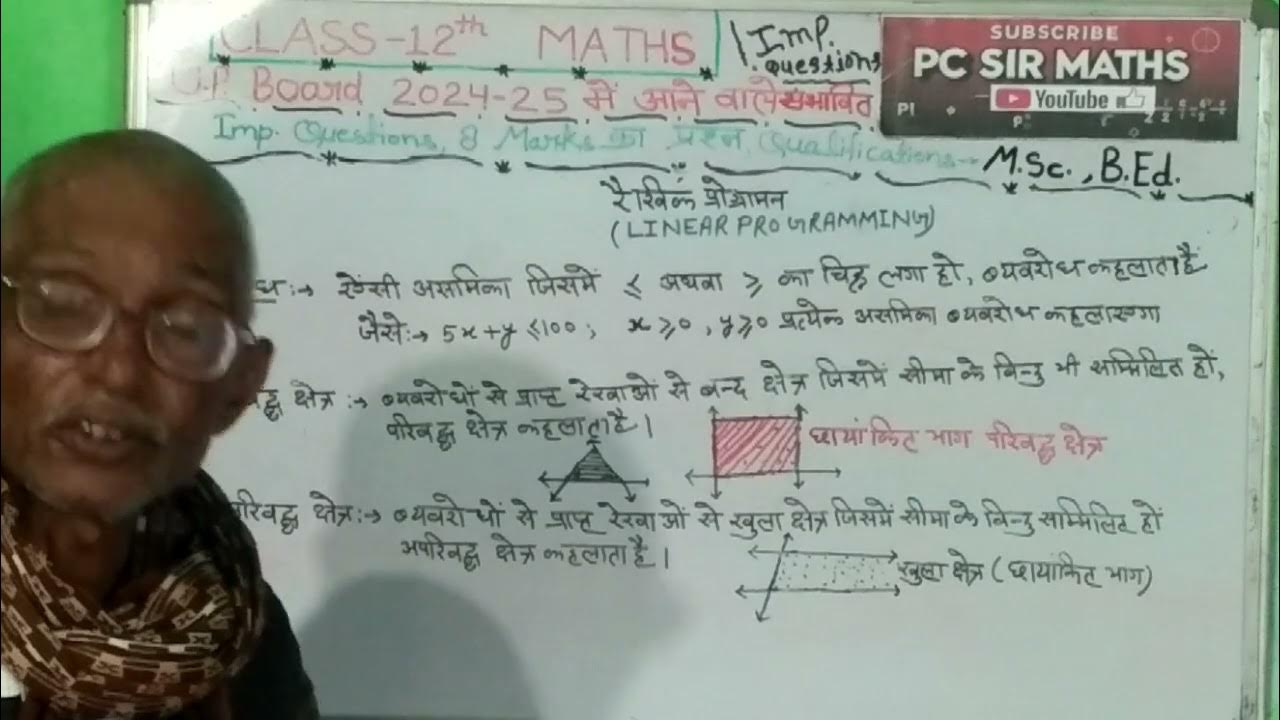 CLASS-12th MATHS
Imp. Questions
SUBSCRIBE
PC SIR MATHS
YouTube
U.P. Board 2024-25 में आने वाले संभावित
Imp. Questions, 8 Marks का प्रश्न, Qualifications- M.Sc., B.Ed.
रैखिक प्रोग्रामन
(LINEAR PROGRAMMING)
ध :→ ऐसी असमिका जिसमें ≤ अथवा ≥ का चिह्न लगा हो, व्यवरोध कहलाता है
जैसे:→ 5x+y ≤100 ; x≥0 , y≥0 प्रत्येक असमिका व्यवरोध कहलाएगा
बद्ध क्षेत्र :→ व्यवरोधों से प्राप्त रेखाओं से बन्द क्षेत्र जिसमें सीमा के बिन्दु भी सम्मिलित हों,
परिबद्ध क्षेत्र कहलाता है।
छायांकित भाग परिबद्ध क्षेत्र
परिबद्ध क्षेत्र:→ व्यवरोधों से प्राप्त रेखाओं से खुला क्षेत्र जिसमें सीमा के बिन्दु सम्मिलित हों
अपरिबद्ध क्षेत्र कहलाता है।
खुला क्षेत्र (छायांकित भाग)